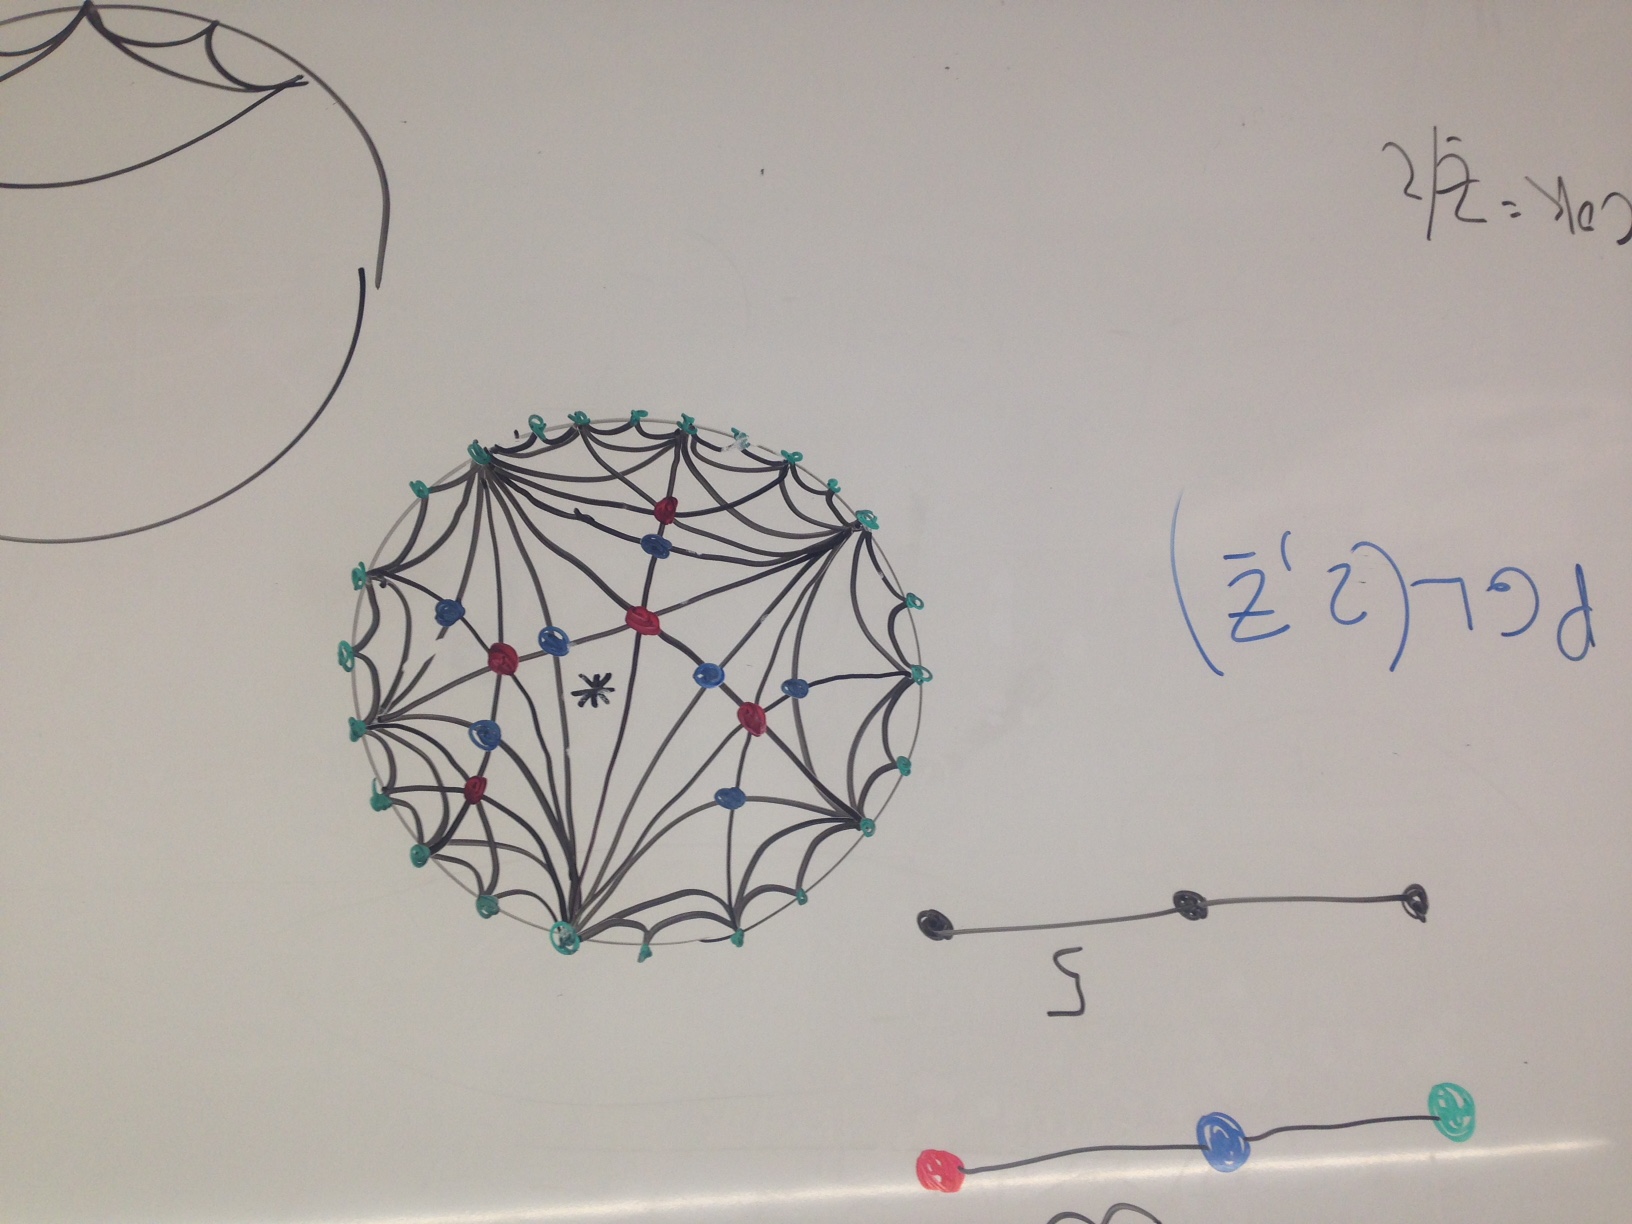 5
*
PGL(2,Z)
COK = Z/2